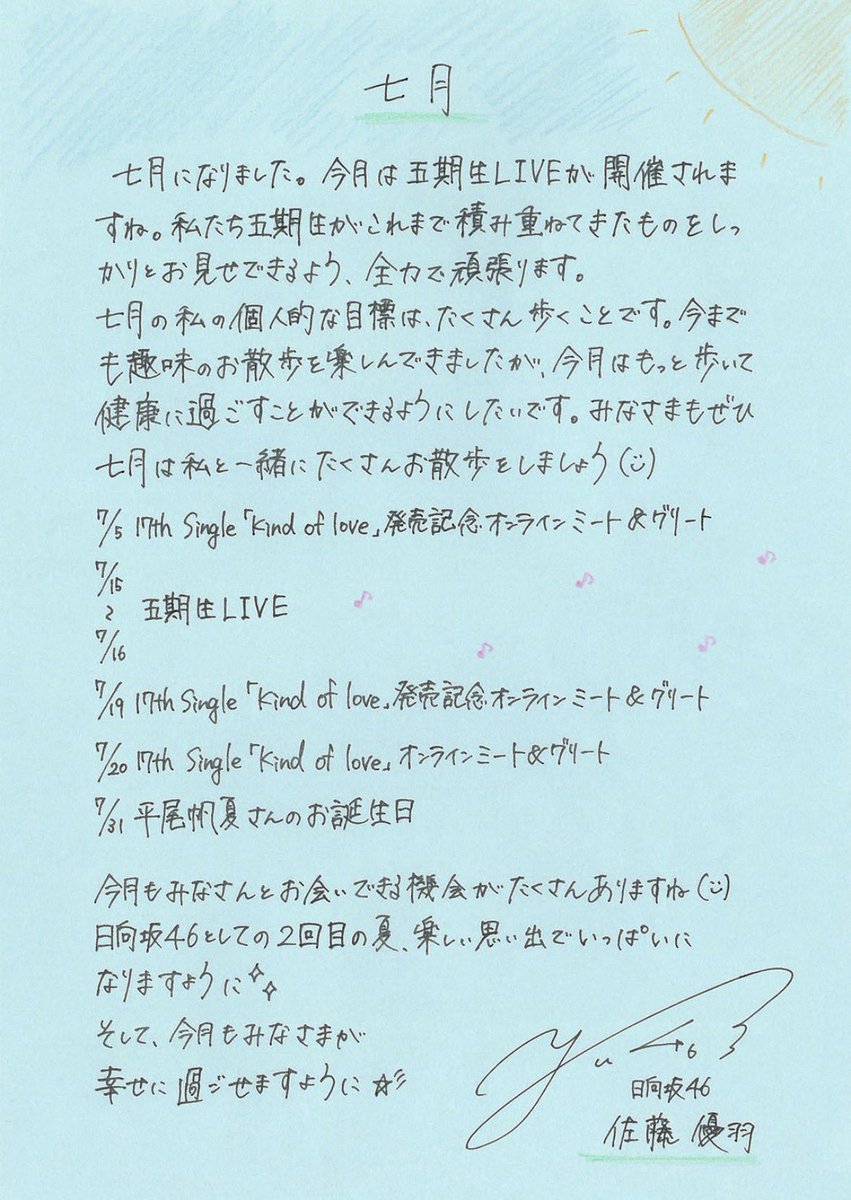 七月
七月になりました。今月は五期生LIVEが開催されま
すね。私たち五期生がこれまで積み重ねてきたものをしっ
かりとお見せできるよう、全力で頑張ります。
七月の私の個人的な目標は、たくさん歩くことです。今まで
も趣味のお散歩を楽しんできましたが、今月はもっと歩いて
健康に過ごすことができるようにしたいです。みなさまもぜひ
七月は私と一緒にたくさんお散歩をしましょう(¨̮)
7/5 17th Single「Kind of love」発売記念オンラインミート&グリート
7/15
〜 五期生LIVE
7/16
7/19 17th Single「Kind of love」発売記念オンラインミート&グリート
7/20 17th Single「Kind of love」オンラインミート&グリート
7/31 平尾帆夏さんのお誕生日
今月もみなさんとお会いできる機会がたくさんありますね(¨̮)
日向坂46としての2回目の夏、楽しい思い出でいっぱいに
なりますように✧
そして、今月もみなさまが
幸せに過ごせますように☆彡
日向坂46
佐藤 優羽